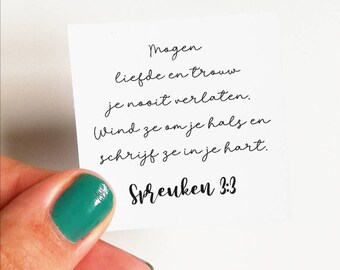 Mogen
liefde en trouw
je nooit verlaten.
Wind ze om je hals en
schrijf ze in je hart.
Spreuken 3:3